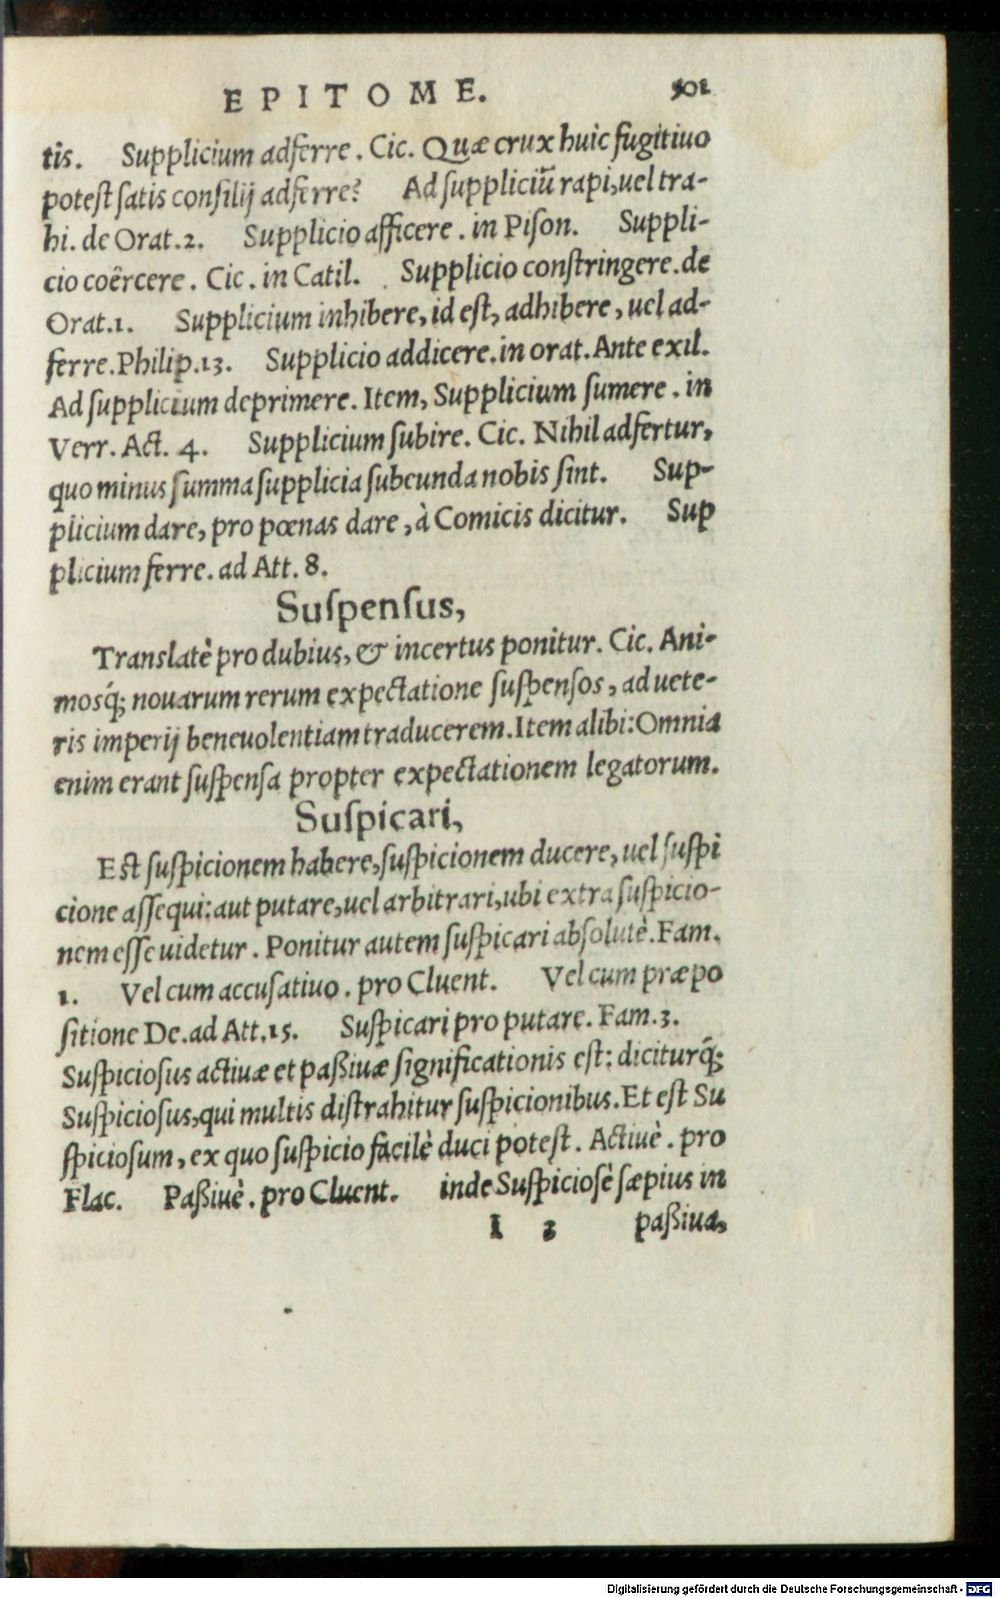 EPITOME. 501
tis. Supplicium adferre. Cic. Quæ crux huic fugitiuo
potest satis consilij adferre? Ad suppliciũ rapi, uel tra-
hi. de Orat.2. Supplicio afficere. in Pison. Suppli-
cio coërcere. Cic. in Catil. Supplicio constringere. de
Orat.1. Supplicium inhibere, id est, adhibere, uel ad-
ferre. Philip.13. Supplicio addicere. in orat. Ante exil.
Ad supplicium deprimere. Item, Supplicium sumere. in
Verr. Act. 4. Supplicium subire. Cic. Nihil adfertur,
quo minus summa supplicia subeunda nobis sint. Sup-
plicium dare, pro pœnas dare, à Comicis dicitur. Sup
plicium ferre. ad Att. 8.
Suspensus,
Translatè pro dubius, & incertus ponitur. Cic. Ani-
mosq́; nouarum rerum expectatione suspensos, ad uete-
ris imperij beneuolentiam traducerem. Item alibi: Omnia
enim erant suspensa propter expectationem legatorum.
Suspicari,
Est suspicionem habere, suspicionem ducere, uel suspi
cione assequi: aut putare, uel arbitrari, ubi extra suspicio-
nem esse uidetur. Ponitur autem suspicari absolutè. Fam.
1. Vel cum accusatiuo. pro Cluent. Vel cum præpo
sitione De. ad Att.15. Suspicari pro putare. Fam.3.
Suspiciosus actiuæ et paßiuæ significationis est: diciturq́;
Suspiciosus, qui multis distrahitur suspicionibus. Et est Su
spiciosum, ex quo suspicio facilè duci potest. Actiuè. pro
Flac. Paßiuè. pro Cluent. inde Suspiciosè sæpius in
I 3 paßiua,
Digitalisierung gefördert durch die Deutsche Forschungsgemeinschaft - DFG